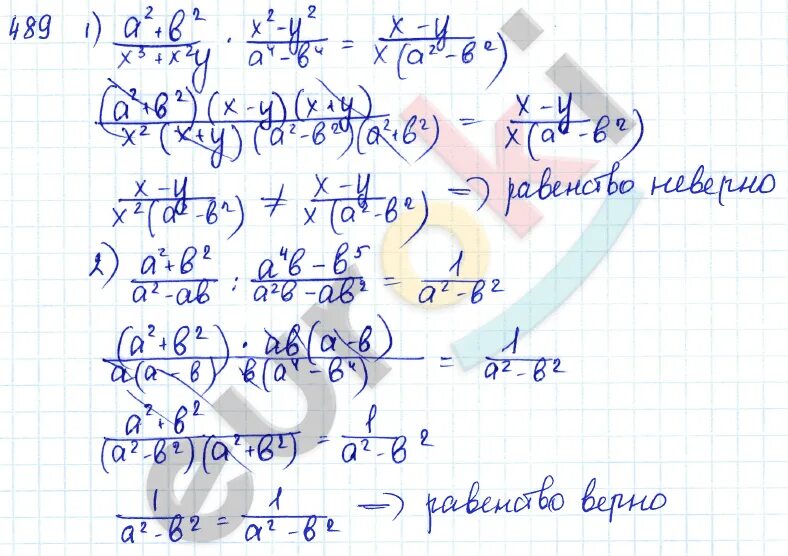 489 1) (a² + b²)/(x³ + x²y) · (x² - y²)/(a⁴ - b⁴) = (x - y)/(x(a² - b²))
((a² + b²)(x - y)(x + y))/(x²(x + y)(a² - b²)(a² + b²)) = (x - y)/(x(a² - b²))
(x - y)/(x²(a² - b²)) ≠ (x - y)/(x(a² - b²)) => равенство неверно
2) (a² + b²)/(a² - ab) : (a⁴b - b⁵)/(a²b - ab²) = 1/(a² - b²)
((a² + b²) · ab(a - b))/(a(a - b) b(a⁴ - b⁴)) = 1/(a² - b²)
(a² + b²)/((a² - b²)(a² + b²)) = 1/(a² - b²)
1/(a² - b²) = 1/(a² - b²) => равенство верно
euroki